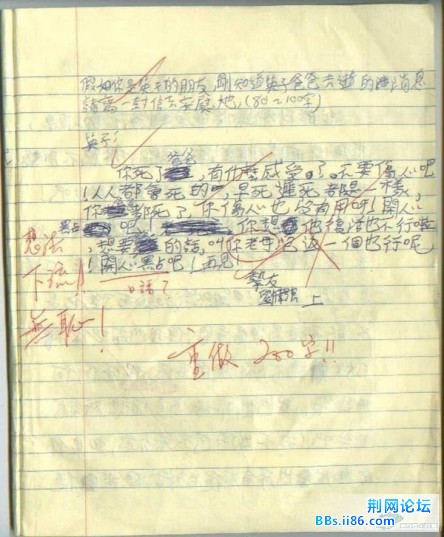 假如你是英子的朋友,剛知道英子爸爸去逝的消息
請寫一封信去安慰她,(80~100字)
英子:
爸爸
你死了,有什麼感受。了。不要傷心吧
!人人都會死的,早死遲死都是一樣,
你都死了,你傷心也沒有用呀!開心
點吧!你想他復活也不行啦
,想要的話,叫你老母
一個也行呢
!開心點吧!再見!
摯友
上
想法
下流!
無恥!
口語了
重做200字!!
荆网论坛
BBs.ii86.com